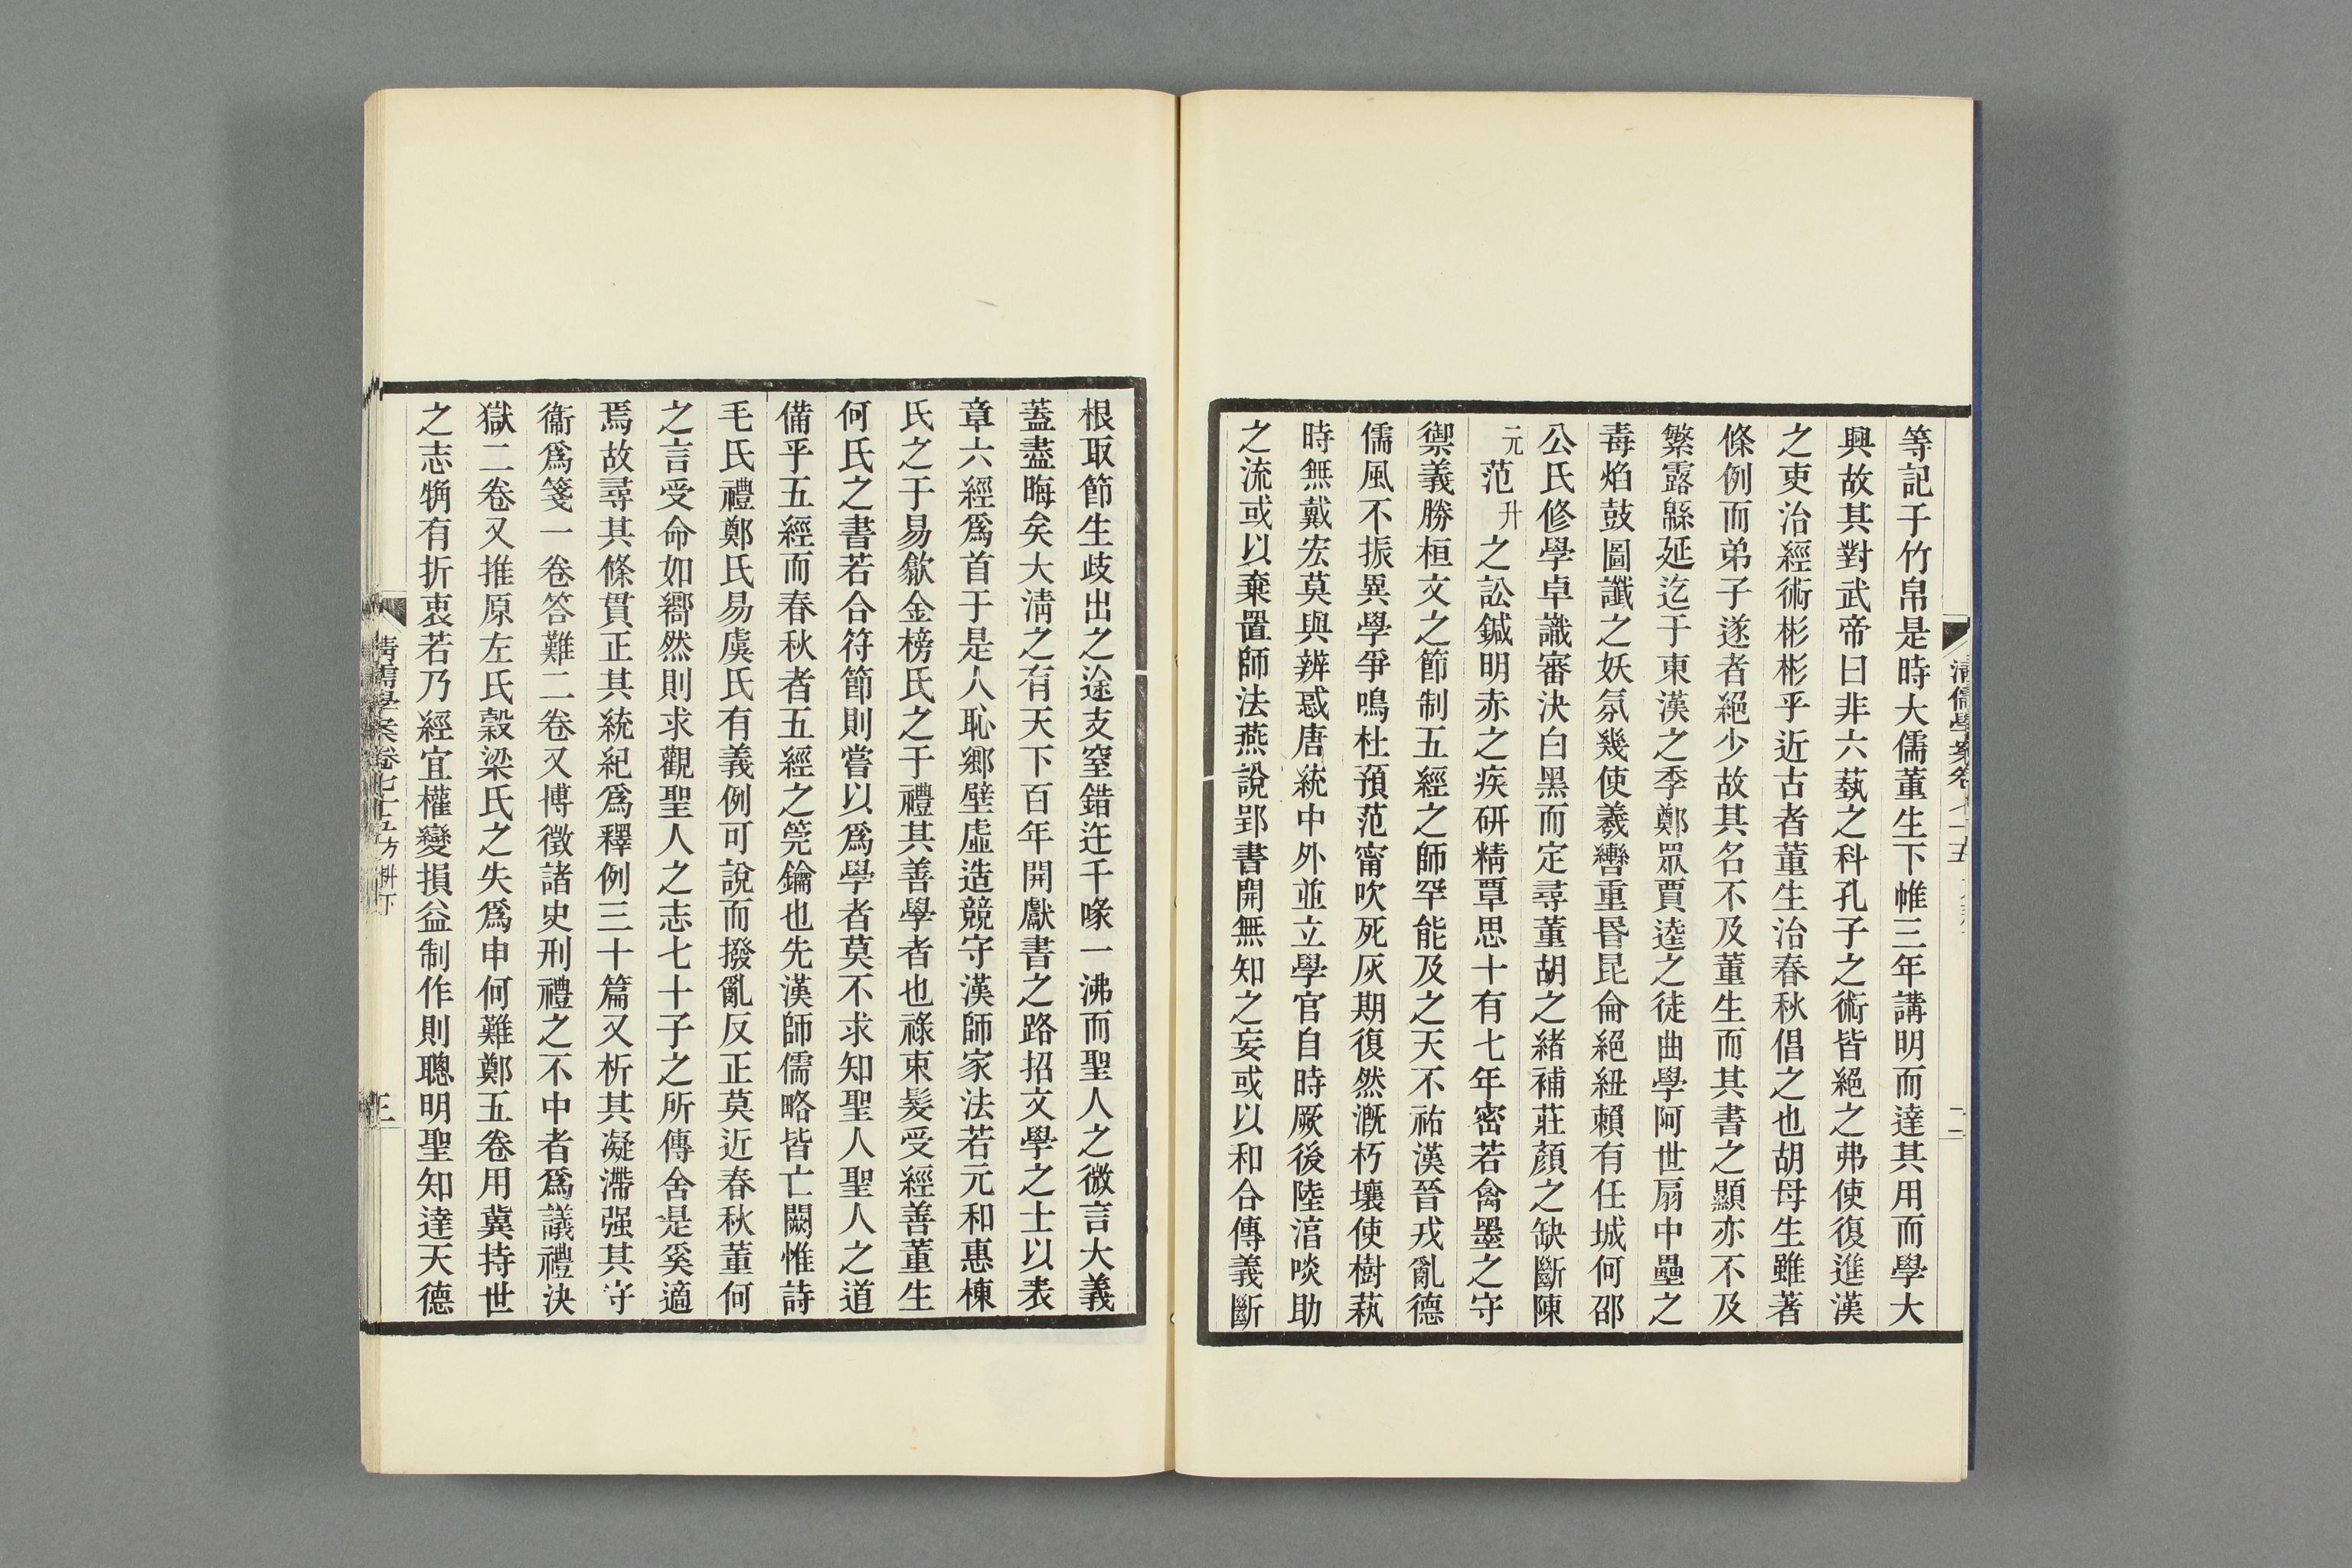 等記于竹帛是時大儒董生下帷三年講明而達其用而學大
興故其對武帝曰非六蓺之科孔子之術皆絕之弗使復進漢
之吏治經術彬彬乎近古者董生治春秋倡之也胡母生雖著
條例而弟子遂者絕少故其名不及董生而其書之顯亦不及
繁露緜延迄于東漢之季鄭眾賈逵之徒曲學阿世扇中壘之
毒焰鼓圖讖之妖氛幾使羲轡重昏昆侖絕紐賴有任城何邵
公氏修學卓識審決白黑而定尋董胡之緒補莊顏之缺斷陳
元范升之訟鍼明赤之疾研精覃思十有七年密若禽墨之守
禦義勝桓文之節制五經之師罕能及之天不祐漢晉戎亂德
儒風不振異學爭鳴杜預范甯吹死灰期復然溉朽壤使樹蓺
時無戴宏莫與辨惑唐統中外並立學官自時厥後陸淳啖助
之流或以棄置師法燕說郢書開無知之妄或以和合傳義斷
清儒學案卷七十五
二
根取節生歧出之途支窒錯迕千喙一沸而聖人之微言大義
蓋盡晦矣大清之有天下百年開獻書之路招文學之士以表
章六經爲首于是人恥鄉壁虛造競守漢師家法若元和惠棟
氏之于易歙金榜氏之于禮其善學者也祿束髮受經善董生
何氏之書若合符節則嘗以爲學者莫不求知聖人聖人之道
備乎五經而春秋者五經之筦鑰也先漢師儒略皆亡闕惟詩
毛氏禮鄭氏易虞氏有義例可說而撥亂反正莫近春秋董何
之言受命如嚮然則求觀聖人之志七十子之所傳舍是奚適
焉故尋其條貫正其統紀爲釋例三十篇又析其凝滯强其守
衞爲箋一卷答難二卷又博徵諸史刑禮之不中者爲議禮決
獄二卷又推原左氏穀梁氏之失爲申何難鄭五卷用冀持世
之志觕有折衷若乃經宜權變損益制作則聰明聖知達天德
清儒學案卷七十五 方耕下
三